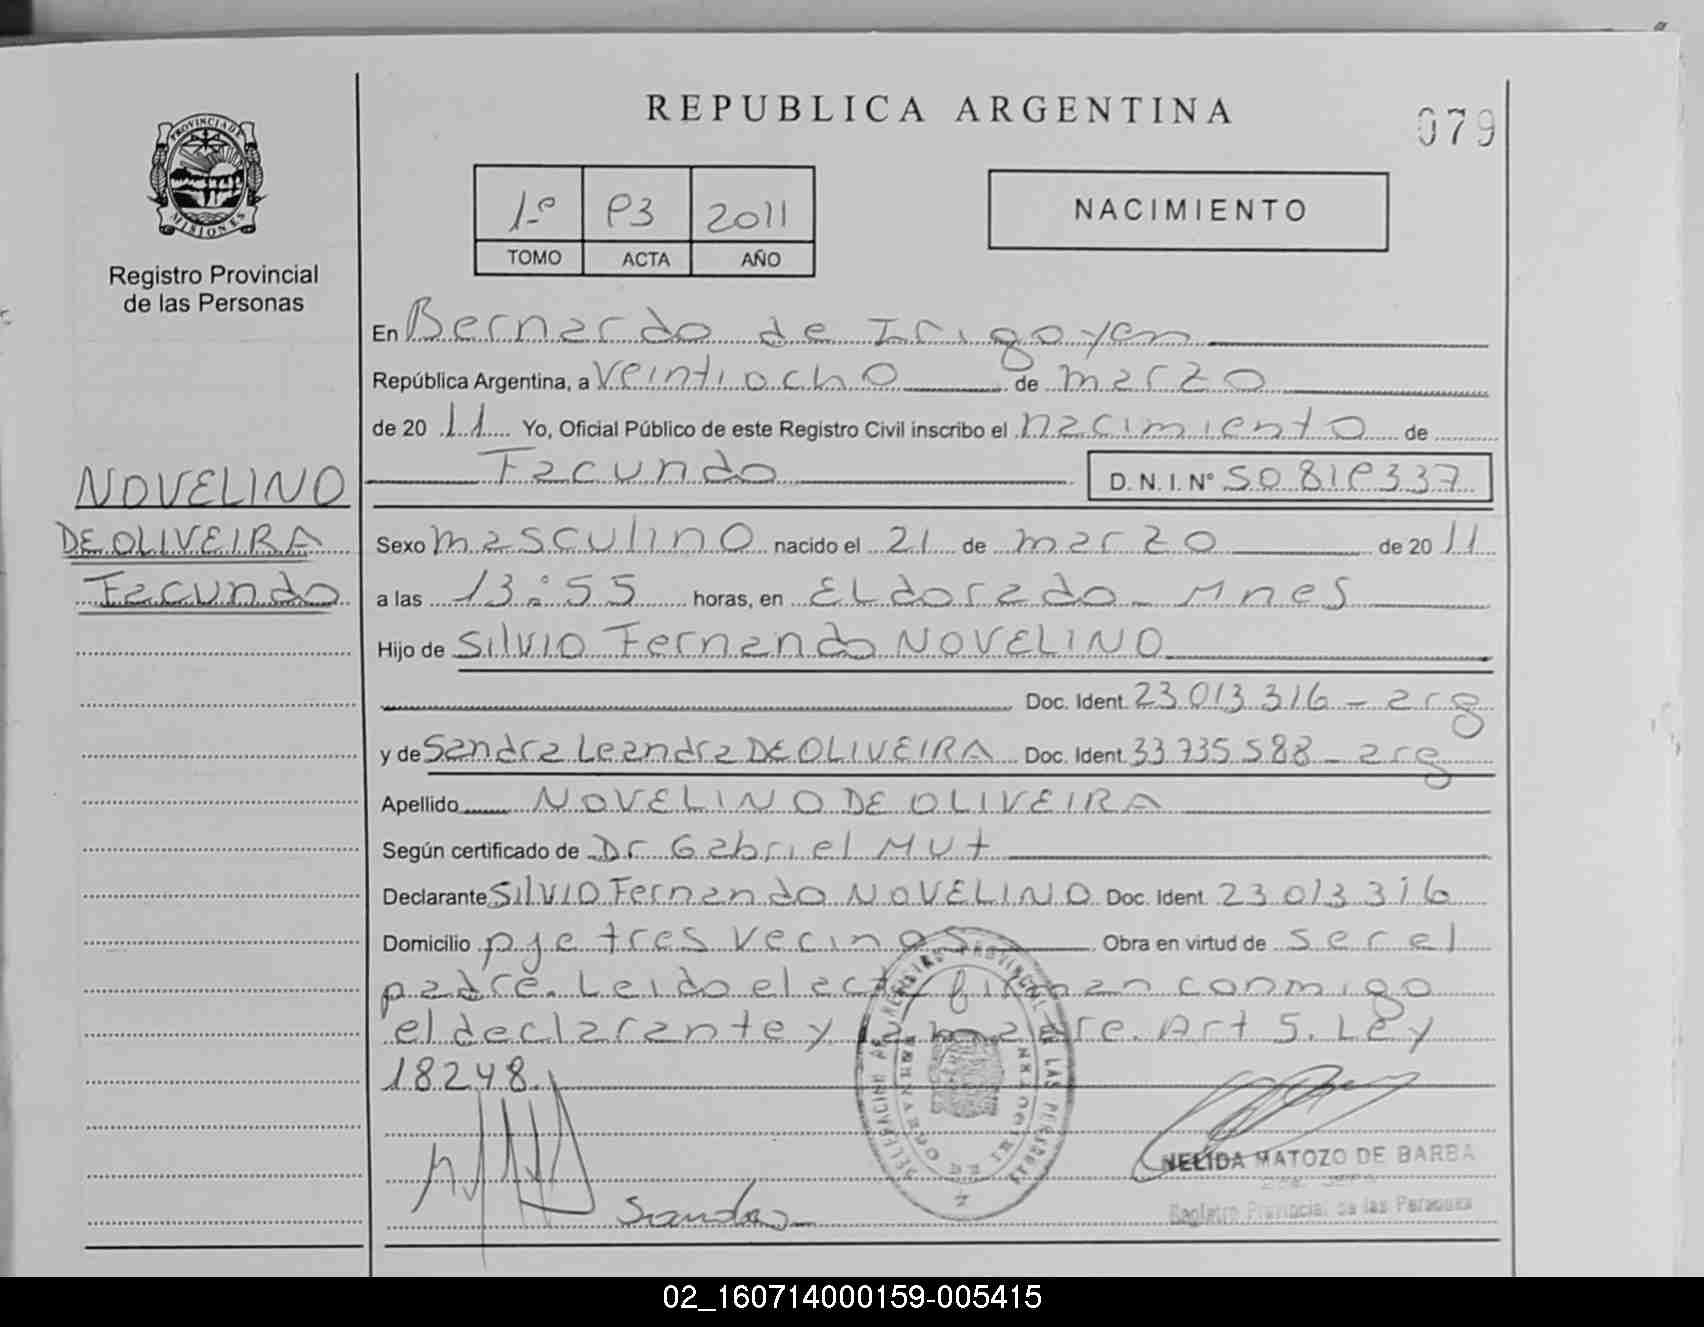 REPUBLICA ARGENTINA
079
PROVINCIA DE MISIONES
Registro Provincial
de las Personas
1º 93 2011
TOMO ACTA AÑO
NACIMIENTO
En Bernardo de Irigoyen
República Argentina, a veintiocho de marzo
de 2011 Yo, Oficial Público de este Registro Civil inscribo el nacimiento de
Facundo D.N.I. Nº 50819337
NOVELINO
DE OLIVEIRA
Facundo
Sexo masculino nacido el 21 de marzo de 2011
a las 13:55 horas, en ELdorado - Mnes
Hijo de Silvio Fernando NOVELINO
Doc. Ident. 23.013.316 - arg
y de Sandra Leandra DE OLIVEIRA Doc. Ident. 33.735.588 - arg
Apellido NOVELINO DE OLIVEIRA
Según certificado de Dr Gabriel Mut
Declarante Silvio Fernando NOVELINO Doc. Ident. 23.013.316
Domicilio pje tres vecinos Obra en virtud de ser el
padre. Leido el acta firman conmigo
el declarante y la madre. Art 5. Ley
18248.
Sandra
NELIDA MATOZO DE BARBA
Registro Provincial de las Personas
02_160714000159-005415